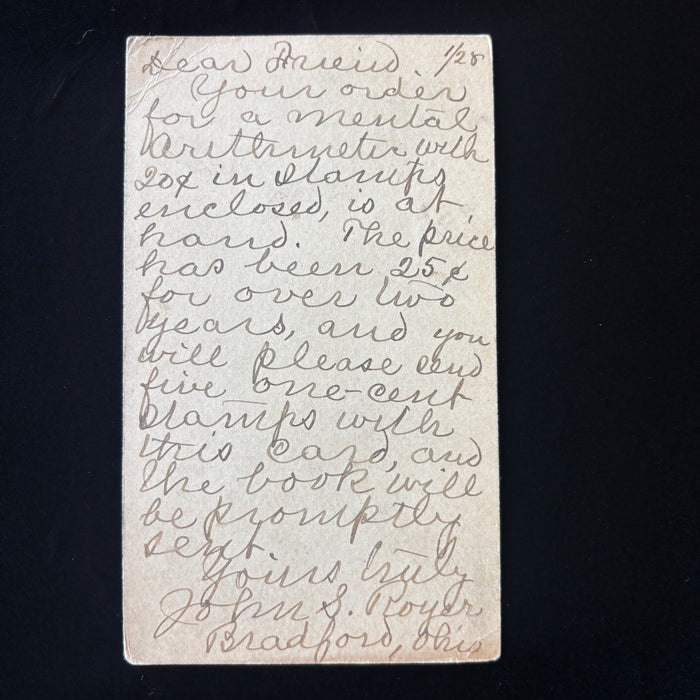 Dear Friend. 1/28
Your order
for a mental
Arithmetic with
20¢ in stamps
enclosed, is at
hand. The price
has been 25¢
for over two
years, and you
will please send
five one-cent
stamps with
this card, and
the book will
be promptly
sent.
Yours truly
John S. Royer
Bradford, Ohio